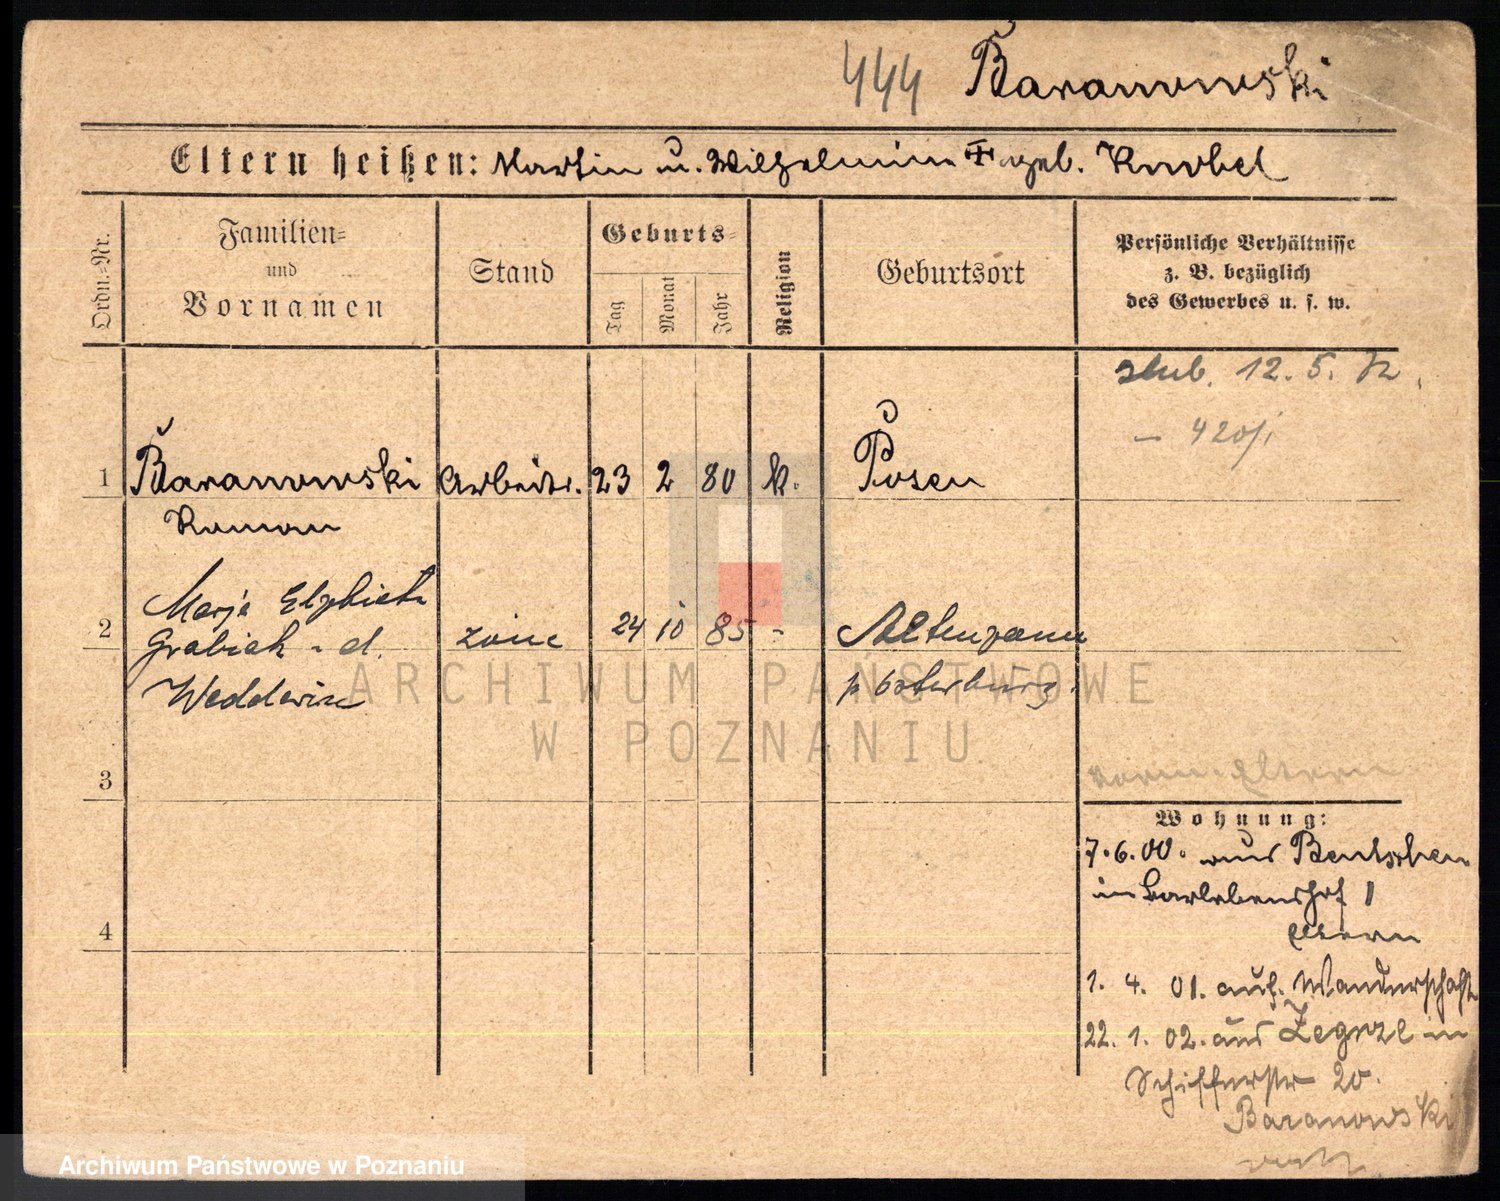 444 Baranowski
Eltern heißen: Martin u. Wilhelmine geb. Knobel
Ordn.-Nr.
Familien-
und
Vornamen
Stand
Geburts-
Tag
Monat
Jahr
Religion
Geburtsort
Persönliche Verhältnisse
z. B. bezüglich
des Gewerbes u. s. w.
ślub. 12. 5.
1 Baranowski Arbeiter. 23 2 80 k. Posen
Roman
Marja Elżbieta
2 Grabiak - d. żona 24 10 85 - Altenzaun
p Osterburg.
ARCHIWUM PAŃSTWOWE
W POZNANIU
3
Eltern
Wohnung:
7.6.00. aus Bentschen
in Barlebenshof 1
Eltern
4
1. 4. 01. auf Wanderschaft
22. 1. 02. aus Zegrze in
Schifferstr 20.
Baranowski
Archiwum Państwowe w Poznaniu